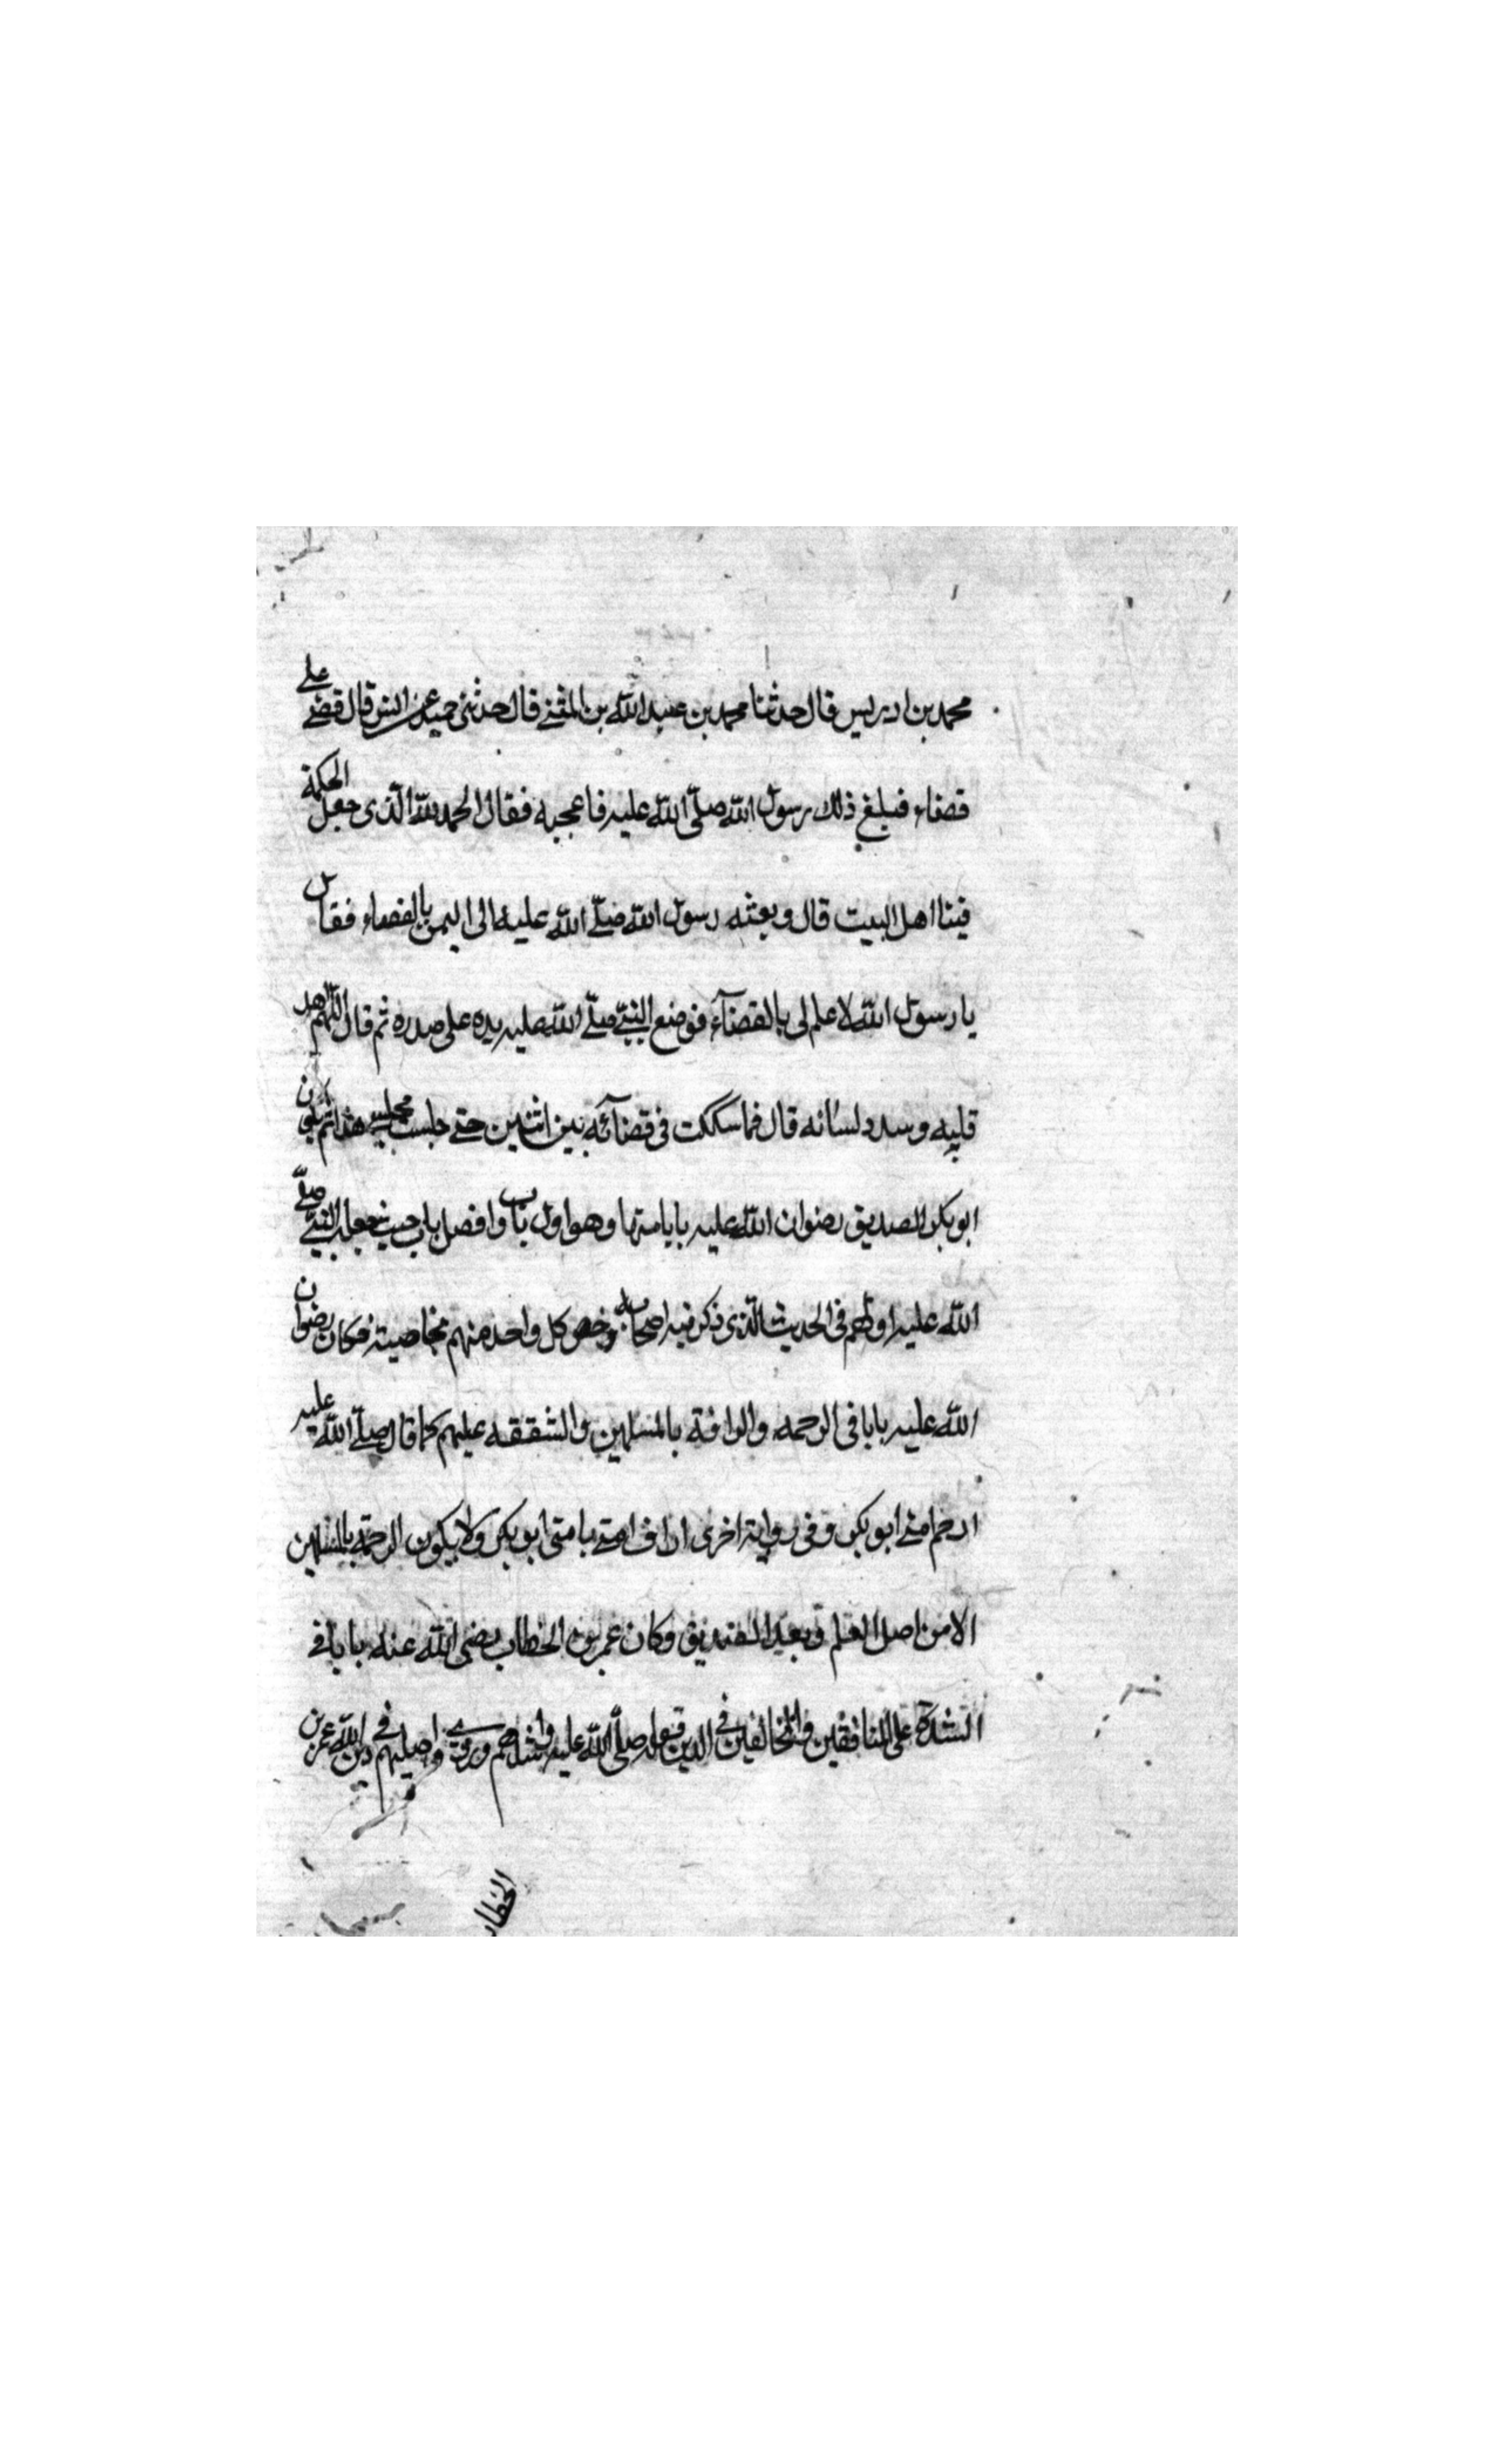 محمد بن ادريس قال حدثنا محمد بن عبد الله بن المثنى قال حدثنى حميد عن انس قال قضى على
قضاء فبلغ ذلك رسول الله صلّى الله عليه فاعجبه فقال الحمد لله الّذى جعل الحكمة
فينا اهل البيت قال وبعثه رسول الله صلّى الله عليه الى اليمن بالقضاء فقال
يا رسول الله لا علم لى بالقضآء فوضع النبىّ صلّى الله عليه يده على صدره ثم قال اللّهم اهد
قلبه وسدد لسانه قال فما سككت فى قضآئه بين اثنين حتى جلست مجلسى هذا ثم يكون
ابو بكر الصديق رضوان الله عليه بابا منها وهو اول باب وافضل باب حيث جعله النبىّ صلّى
الله عليه اولهم فى الحديث الّذى ذكر فيه اصحابه وخص كل واحد منهم بخاصيته فكان رضوان
الله عليه بابا فى الرحمه والرافة بالمسلمين والشفقه عليهم كما قال صلّى الله عليه
ارحم امتى ابو بكر وفى رواية اخرى اراف امتى بامتى ابو بكر ولا يكون الرحمة بالمسلمين
الا من اصل العلم وبعد الصديق وكان عمر بن الخطاب رضى الله عنه بابا فى
الشدة على المنافقين والمخالفين فى الدين قوله صلّى الله عليه واشدهم وروى واصلبهم فى دين الله عمر بن
الخطاب